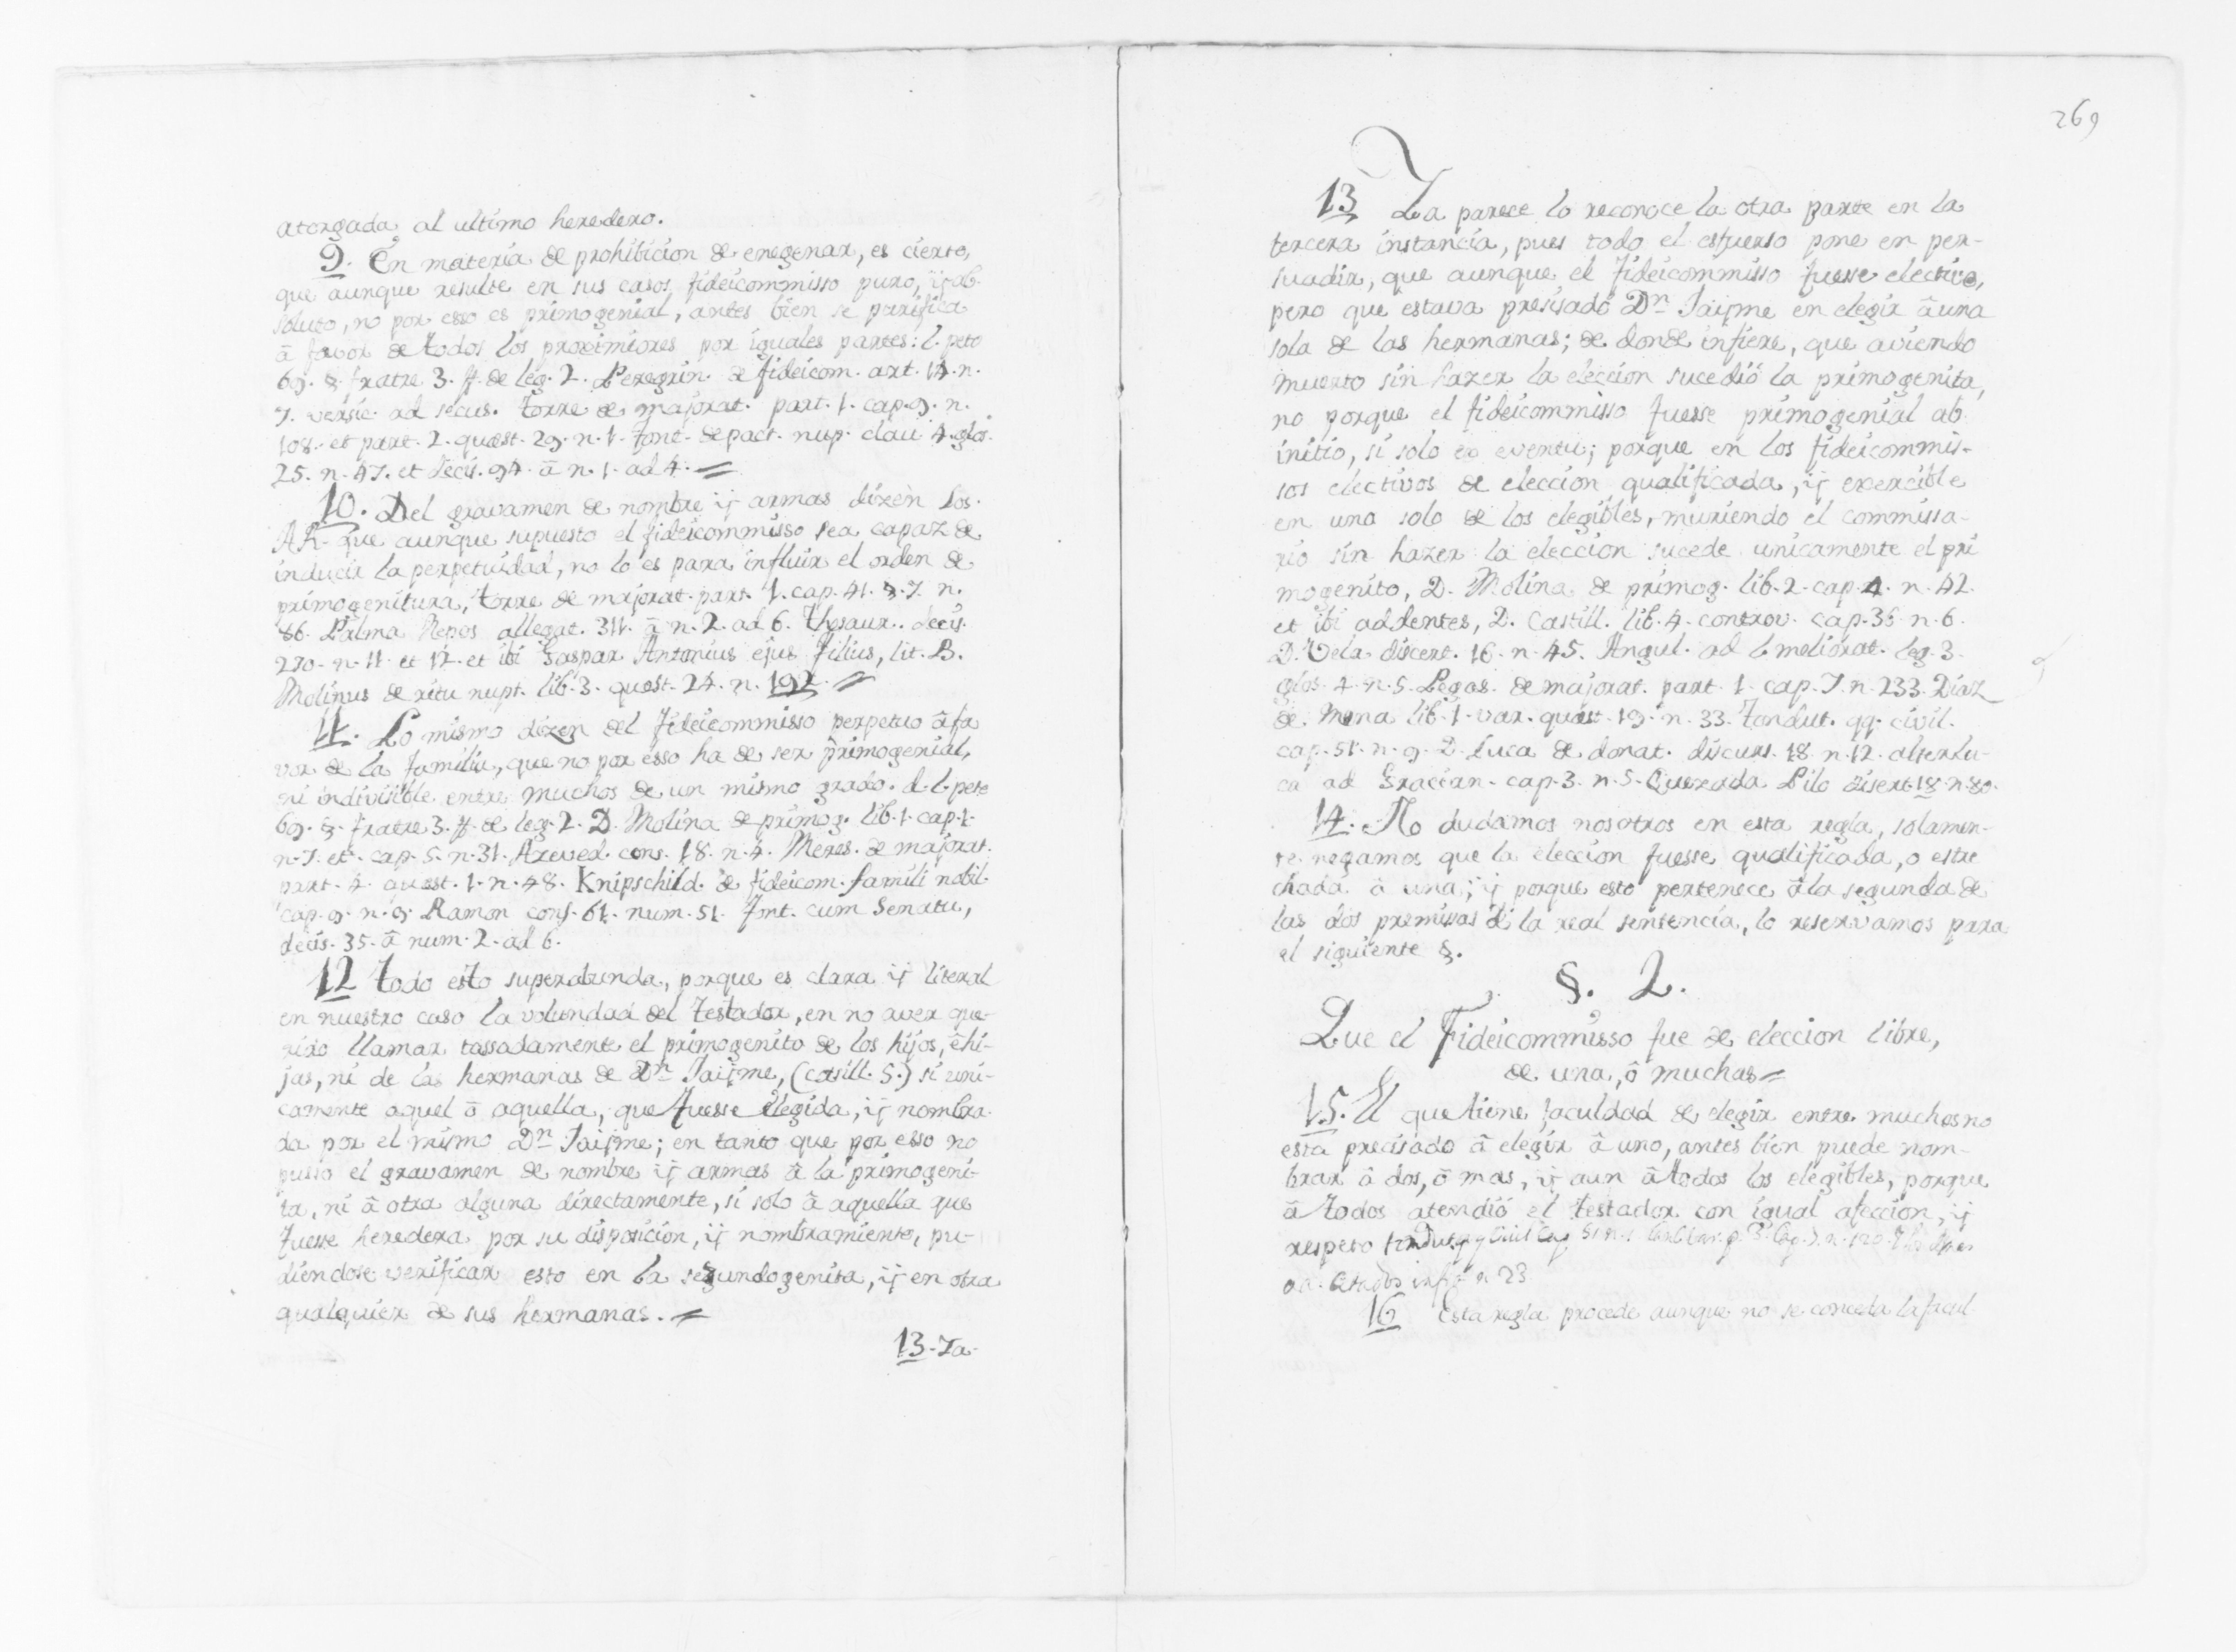 atorgada al ultimo heredero.
9. En materia de prohibicion de enegenar, es cierto,
que aunque resulte en sus casos fideicommisso puro, ÿ ab-
soluto, no por esso es primogenial, antes bien se purifica
â favor de todos los proximiores por iguales partes: l. peto
69. §. fratre 3. ff. de leg. 2. Peregrin. de fideicom. art. 14. n.
7. versic. ad secus. Torre de majorat. part. 1. cap. 9. n.
108. et part. 2. quæst. 29. n. 1. Font. de pact. nup. clau 4. glos.
25. n. 47. et decis. 94. â n. 1. ad 4.
10. Del gravamen de nombre ÿ armas dizen los
AA. que aunque supuesto el fideicommisso sea capaz de
inducir la perpetuidad, no lo es para influir el orden de
primogenitura, Torre de majorat. part. 1. cap. 41. §. 7. n.
86. Palma Nepos allegat. 311. â n. 2. ad 6. Thesaur. decis.
270. n. 11. et 12. et ibi Gaspar Antonius ejus filius, lit. B.
Molinus de ritu nupt. lib. 3. quæst. 24. n. 192.
11. Lo mismo dizen del fideicommisso perpetuo â fa
vor de la familia, que no por esso ha de ser primogenial,
ni indivisible entre muchos de un mismo grado. d. l. peto
69. §. fratre 3. ff. de leg. 2. D. Molina de primog. lib. 1. cap. 1.
n. 7. et. cap. 5. n. 31. Azeved. cons. 18. n. 4. Meres. de majorat.
part. 4. quæst. 1. n. 48. Knipschild. de fideicom. famili nobil.
cap. 9. n. 9. Ramon cons. 61. num. 51. Font. cum Senatu,
decis. 35. â num. 2. ad 6.
12 Todo esto superabunda, porque es clara ÿ literal
en nuestro caso la voluntad del Testador, en no aver que-
rido llamar tassadamente el primogenito de los hijos, ê hi-
jas, ni de las hermanas de Dn Jaÿme, (casill. 5.) si uni-
camente aquel ô aquella, que fuesse elegida, ÿ nombra-
da por el mismo Dn Jaÿme; en tanto que por esso no
puso el gravamen de nombre ÿ armas â la primogeni-
ta, ni â otra alguna directamente, si solo â aquella que
fuesse heredera por su disposicion, ÿ nombramiento, pu-
diendose verificar esto en la segundogenita, ÿ en otra
qualquier de sus hermanas.
13. Ya
269
13 Ya parece lo reconoce la otra parte en la
tercera instancia, pues todo el esfuerso pone en per-
suadir, que aunque el fideicommisso fuesse electivo,
pero que estava presisado Dn Jaÿme en elegir â una
sola de las hermanas; de donde infiere, que aviendo
muerto sin hazer la eleccion sucedió la primogenita,
no porque el fideicommisso fuesse primogenial ab
initio, si solo ex eventu; porque en los fideicommis-
sos electivos de eleccion qualificada, ÿ exercible
en uno solo de los elegibles, muriendo el commissa-
rio sin hazer la eleccion sucede unicamente el pri
mogenito, D. Molina de primog. lib. 2. cap. 4. n. 42.
et ibi addentes, D. Castill. lib. 4. controv. cap. 36. n. 6.
D. Vela discert. 16. n. 45. Angul. ad l. meliorat. leg. 3.
glos. 4. n. 5. Pegas. de majorat. part. 1. cap. 7. n. 233. Diaz
de Mena lib. 1. var. quæst. 19. n. 33. Fondut. qq. civil.
cap. 51. n. 9. D. Luca de donat. discurs. 18. n. 12. alter Lu-
ca ad Gracian. cap. 3. n. 5. Quezada Pilo disert. 18. n. 80.
14. No dudamos nosotros en esta regla, solamen-
te negamos que la eleccion fuesse qualificada, o estre
chada â una; ÿ porque esto pertenece â la segunda de
las dos premissas de la real sentencia, lo reservamos para
el siguiente §.
§. 2.
Que el Fideicommisso fue de eleccion libre,
de una, ô muchas
15. El que tiene facultad de elegir entre muchos no
esta precisado â elegir â uno, antes bien puede nom-
brar â dos, ô mas, ÿ aun â todos los elegibles, porque
â todos atendió el Testador con igual afeccion, ÿ
respeto Fondut. qq Civil Cap 51 n.
citados infra n 23
16 Esta regla procede aunque no se conceda la facul-